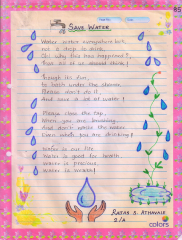 SAVE WATER
Water, water everywhere but,
not a drop to drink,
Oh! why this has happened?,
Though its fun,
to bath under the shower,
Please don't do it,
And save a lot of water!
Please close the tap,
When you are brushing
And don't waste the water
Even when you are drinking!
Water is our life
Water is good for health
Water is precious
Water is
RAJAS S. ATHAVALE
colors